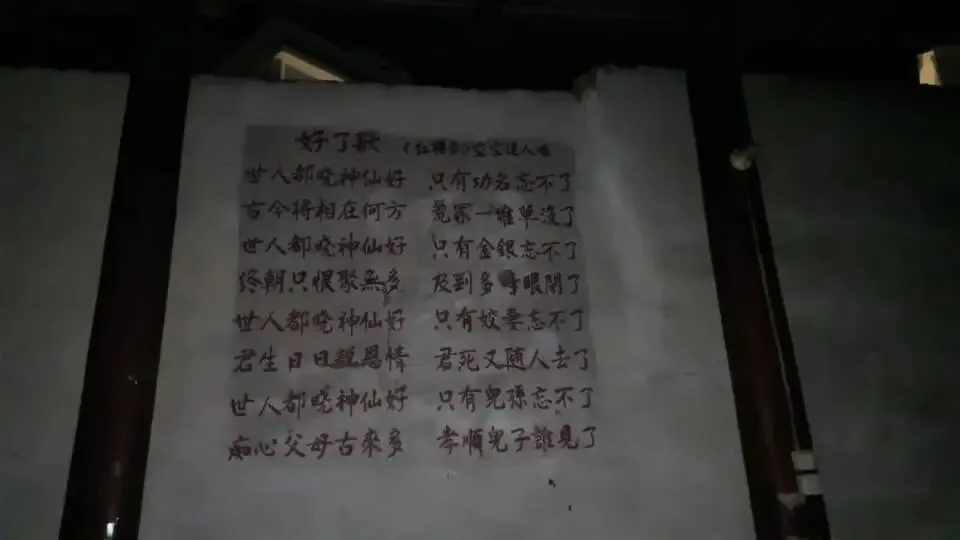 好了歌 《红楼梦》空空道人唱
世人都晓神仙好 只有功名忘不了
古今将相在何方 荒冢一堆草没了
世人都晓神仙好 只有金銀忘不了
终朝只恨聚無多 及到多 眼閉了
世人都晓神仙好 只有姣妻忘不了
君生日日說恩情 君死又随人去了
世人都晓神仙好 只有兒孫忘不了
痴心父母古來多 孝順兒子誰見了